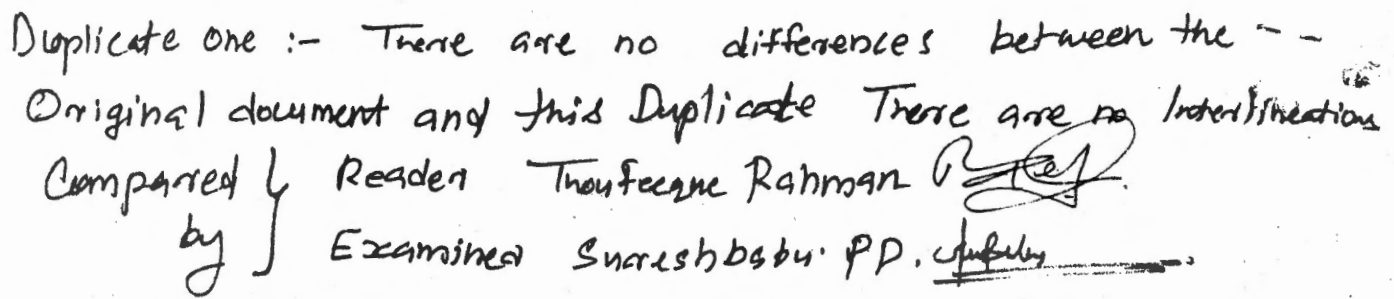 Duplicate one :- There are no differences between the - -
Original document and this Duplicate There are no Interlineations
Compared } Reader Thoufeeque Rahman
by } Examiner Sureshbabu. P.D.